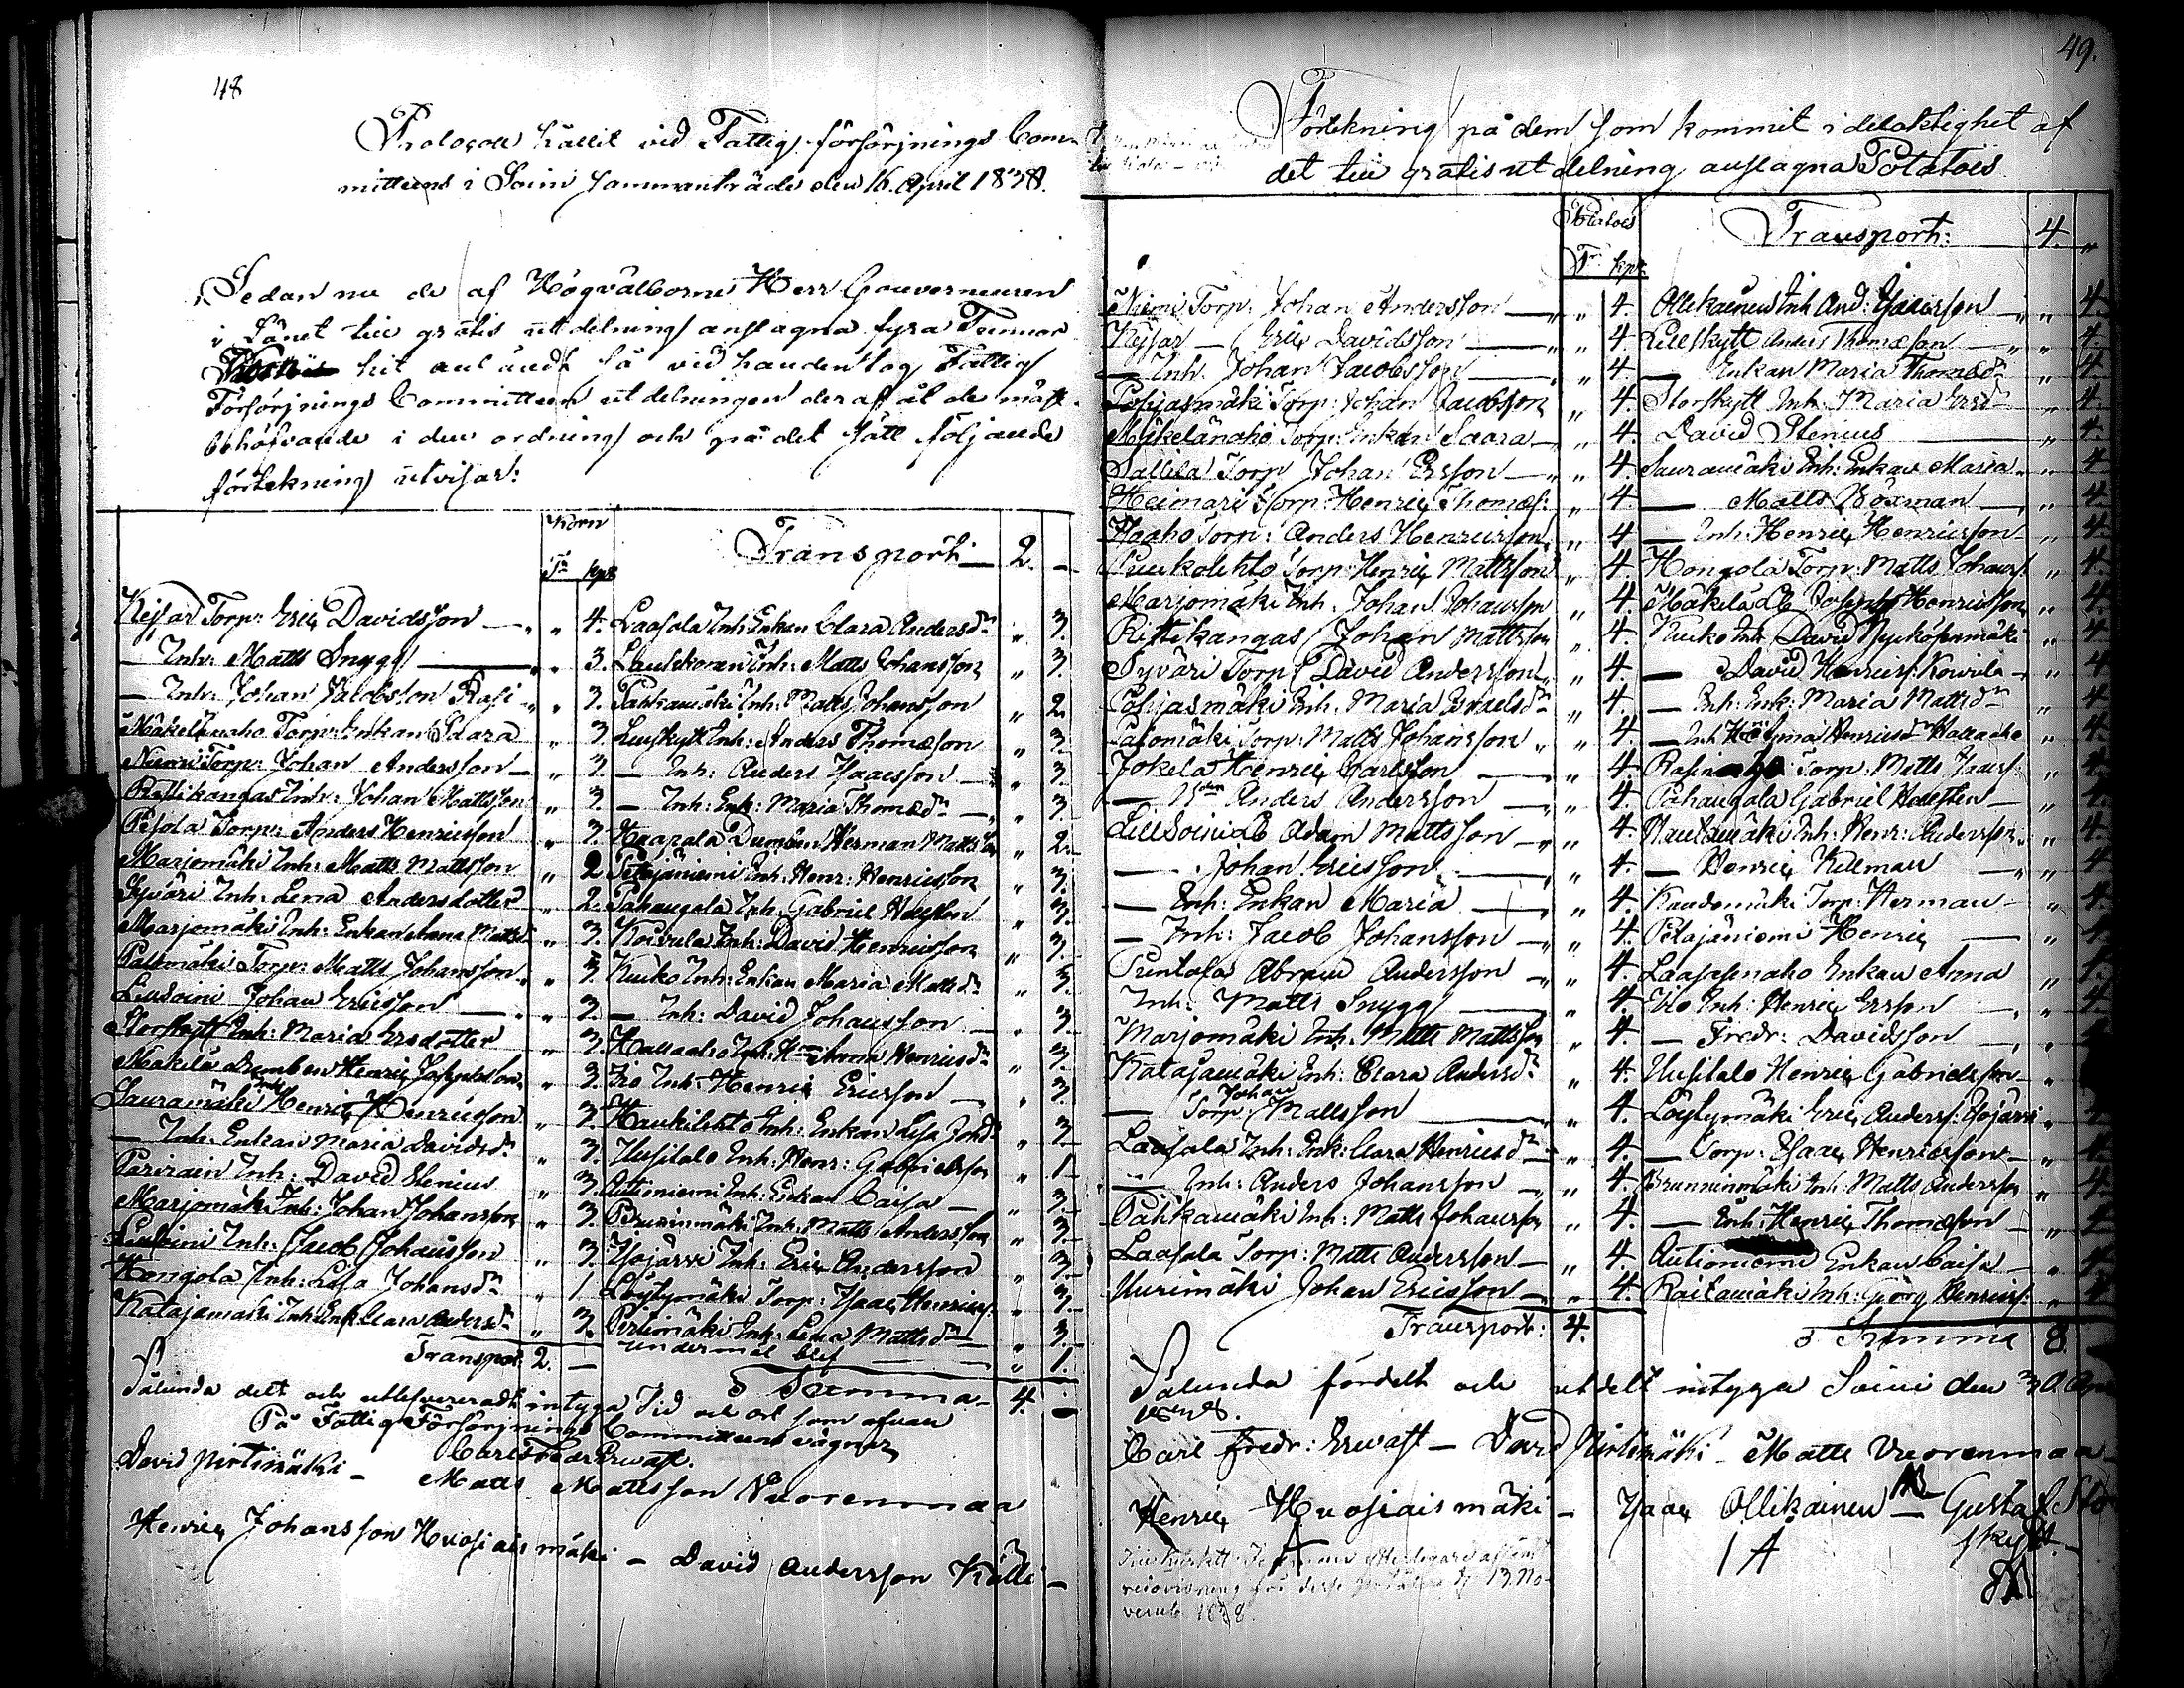 48
Protocoll hållit vid Fattig försörjnings Com-
mitteens i Soini sammanträde den 16. April 1838.
Sedan nu de af Högvälborne Herr Gouverneuren
i Länet till gratis utdelning anslagna fyra Tunnor
hit anländt så vid handen tog Fattig
Försörjnings Committeen utdelningen deraf åt de mäst
behöfvande i den ordning och på det sätt följande
förtekning utvisar:
Korn
Tr kpr
Kejsar Torp: Eric Davidsson — „ „ 4.
— Inh: Matts Snygg — „ „ 3.
— Inh: Johan Jacobsson Rasi „ „ 3.
Mäkelänaho Torp: Enkan Saara „ „ 3.
Niemi Torp: Johan Andersson — „ 3.
Rittikangas Inh: Johan Mattsson „ 3
Pesola Torp: Anders Henricsson „ 3.
Marjomäki Inh: Matts Mattsson „ 2
Syväri Inh: Lena Andersdotter „ 2.
Marjomäki Inh: Enkan Lena Mattsd. „ 3.
Palomäki Torp: Matts Johansson „ 3.
Lillsoini Johan Ericsson — „ 3.
Storskytt Inh: Maria Ersdotter „ 3.
Mäkelä Henric Josephsson „ 3.
Sauramäki Inh: Henric Henricsson „ 3.
— Inh: Enkan Maria Davidsdr „ 3.
Parirain Inh: David Stenius „ 3.
Marjomäki Inh: Johan Johansson „ 3.
Lillsoini Inh: Jacob Johansson „ 3.
Hongola Inh: Lisa Johansdr „ 1.
Katajamäki Inh: Enk: Clara Andersdr „ 3.
Transport 2. —
Transport: — 2. —
Laasola Inh: Enkan Clara Andersdr „ 3.
Laukkonen Inh: Matts Johansson „ 3.
Pahkamäki Inh: Matts Johansson „ 2.
Lillskytt Inh: Anders Thomasson „ 3.
— Inh: Anders Isaacsson — „ 3.
— Inh: Enk: Maria Thomædr — „ 3.
Haapala Herman Mattsson „ 2.
Petäjäniemi Inh: Henr: Henricsson „ 3.
Pahangola Inh: Gabriel Hallstén „ 3.
Koivula Inh: David Henricsson „ 3.
Kuiko Inh: Enkan Maria Mattsdr „ 3.
— Inh: David Johansson — „ 3.
Hallaaho Inh: Anna Henricsdr „ 3.
Iso Inh: Henric Ericsson — „ 3.
Haukilehto Inh: Enkan Lisa Johdr „ 3
Uusitalo Inh: Henr: Gabrielsson „ 1.
Autioniemi Inh: Enkan Caisa — „ 3.
Bruninmäki Inh: Matts Andersson „ 3.
Isojärvi Inh: Eric Andersson „ 3
Löytymäki Torp: Isaac Henricss: „ 3.
Pirtimäki Inh: Lena Mattsdr — „ 3.
undermål blef — „ 1.
Summa 4. —
Sålunda delt och utlefvereradt intyga Tid och ort som ofvan
På Fattig Försörjnings Committeens vägnar
Carl Fredr Erwast.
David Pirtimäki — Matts Mattsson Vuorenmaa
Henric Johansson Huosiaismäki — David Andersson Källi —
49.
Förtekning på dem som kommit i delaktighet af
det till gratis utdelning anslagna Potatoës
Potatoes
Tr kpr
Niemi Torp: Johan Andersson — „ 4.
Kejsar — Eric Davidsson — „ 4
— Inh: Johan Jacobsson — „ 4
Pohjasmäki Torp: Johan Jacobsson „ 4.
Mäkelänaho Torp: Enkan Saara — „ 4.
Sallila Torp Johan Ersson — „ 4.
Heimari Torp: Henric Thomæs: „ 4.
Haaho Torp: Anders Henricsson „ 4
Puukolehto Torp: Henric Mattsson „ 4
Marjomäki Inh: Johan Johansson „ 4.
Rittikangas Johan Mattsson „ 4
Syväri Torp David Andersson „ 4.
Pohjasmäki Inh: Maria Israelsdr „ 4.
Palomäki Torp: Matts Johansson „ „ 4
Jokela Henric Carlsson — „ 4.
— Anders Andersson — „ 4.
Lillsoini Adam Mattsson — „ 4.
— Johan Ericsson — „ 4.
— Inh: Enkan Maria — „ 4.
— Inh: Jacob Johansson — „ 4.
Puntala Abram Andersson — „ 4.
Inh: Matts Snygg — „ 4.
Marjomäki Inh: Matts Mattsson „ 4.
Katajamäki Inh: Clara Andersdr „ 4.
— Torp: Johan Mattsson — „ 4.
Laasala Inh: Enk: Clara Henricsdr — „ 4.
— Inh: Anders Johansson — „ 4.
Pahkamäki Inh: Matts Johansson „ 4.
Laasala Torp: Matts Andersson — „ 4.
Uurimäki Johan Ericsson — „ 4.
Transport: 4.
Transport: 4. „
Ollikainen Inh And: Isaacsson — „ 4.
Lillskytt Anders Thomæson — „ 4.
— Enkan Maria Thomædr „ 4
Storskytt Inh: Maria Ersdr „ 4.
David Stenius — „ 4.
Sauramäki Inh: Enkan Maria „ 4
— Matts Boxman — „ 4
— Inh: Henric Henricsson — „ 4.
Hongola Torp: Matts Johanss: „ 4.
Mäkelä Joseph Henricsson „ 4.
Kuiko Inh: David Nyckösenmäki „ 4
— David Henricss: Koivula — „ 4
— Inh: Enk: Maria Mattsdr — „ 4
— Inh Henricsdr Hallaaho „ 4
Rasin Torp: Matts Isaacss: „ 4
Pahangala Gabriel Hallstén — „ 4.
Inh: Henr: Andersson „ 4.
— Henric Killman — „ 4
Torp: Herman — „ 4.
Petäjäniemi Henric — „ 4
Laasasenaho Enkan Anna „ 4.
Iso Inh: Henric Ersson — „ 4.
— Fredr: Davidsson —
Uusitalo Henric Gabrielsson — „ 4
Löytymäki Eric Anderss: Isojärvi „ 4.
— Torp: Isaac Henricsson — „ 4.
Bruninmäki Inh: Matts Andersson „ 4.
— Inh: Henric Thomæson — „ 4
Autioniemi Enkan Caisa — „ 4
Raitamäki Inh: Görg Henricss: „ 4
Summa 8.
Sålunda fördelt och utdelt intyga Soini den 30.
Carl Fredr: Erwast — David Pirtimäki — Matts Vuorenmaa —
Henric Huosiaismäki — Isaac Ollikainen — Gustaf Sto
skytt.